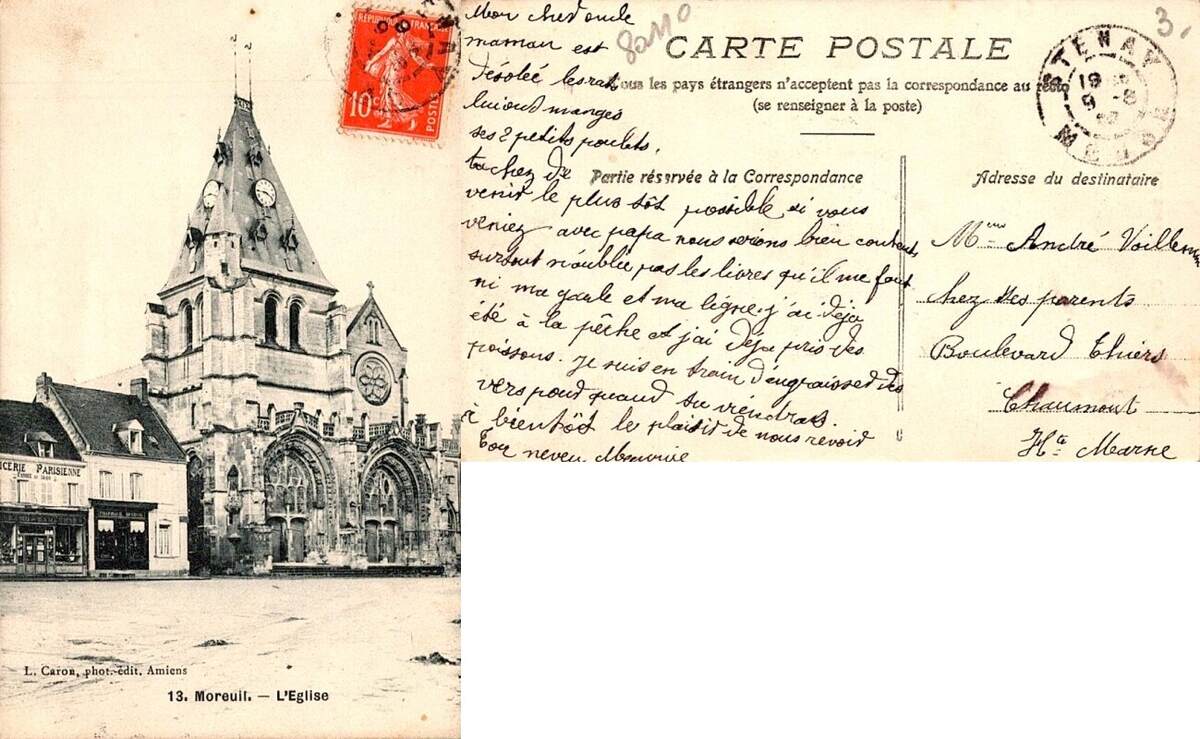 RÉPUBLIQUE FRANÇAISE
10c
POSTES
CERIE PARISIENNE
L. Caron, phot.-édit. Amiens
13. Moreuil. — L'Eglise
80110
3
CARTE POSTALE
Tous les pays étrangers n'acceptent pas la correspondance au recto
(se renseigner à la poste)
STENAY
MEUSE
Partie réservée à la Correspondance
Adresse du destinataire
Mon cher oncle
maman est
désolée les rats
lui ont mangés
ses 2 petits poulets,
tachez de
venir le plus tôt possible si vous
veniez avec papa nous serions bien contents
surtout n'oublie pas les livres qu'il me faut
ni ma gaule et ma ligne. j'ai déja
été à la pêche et j'ai déja pris des
poissons. Je suis en train d'engraisser des
vers pour quand tu viendras.
à bientôt le plaisir de nous revoir
Ton neveu Maurice
Mme André Voillemin
chez ses parents
Boulevard Thiers
Chaumont
Hte Marne